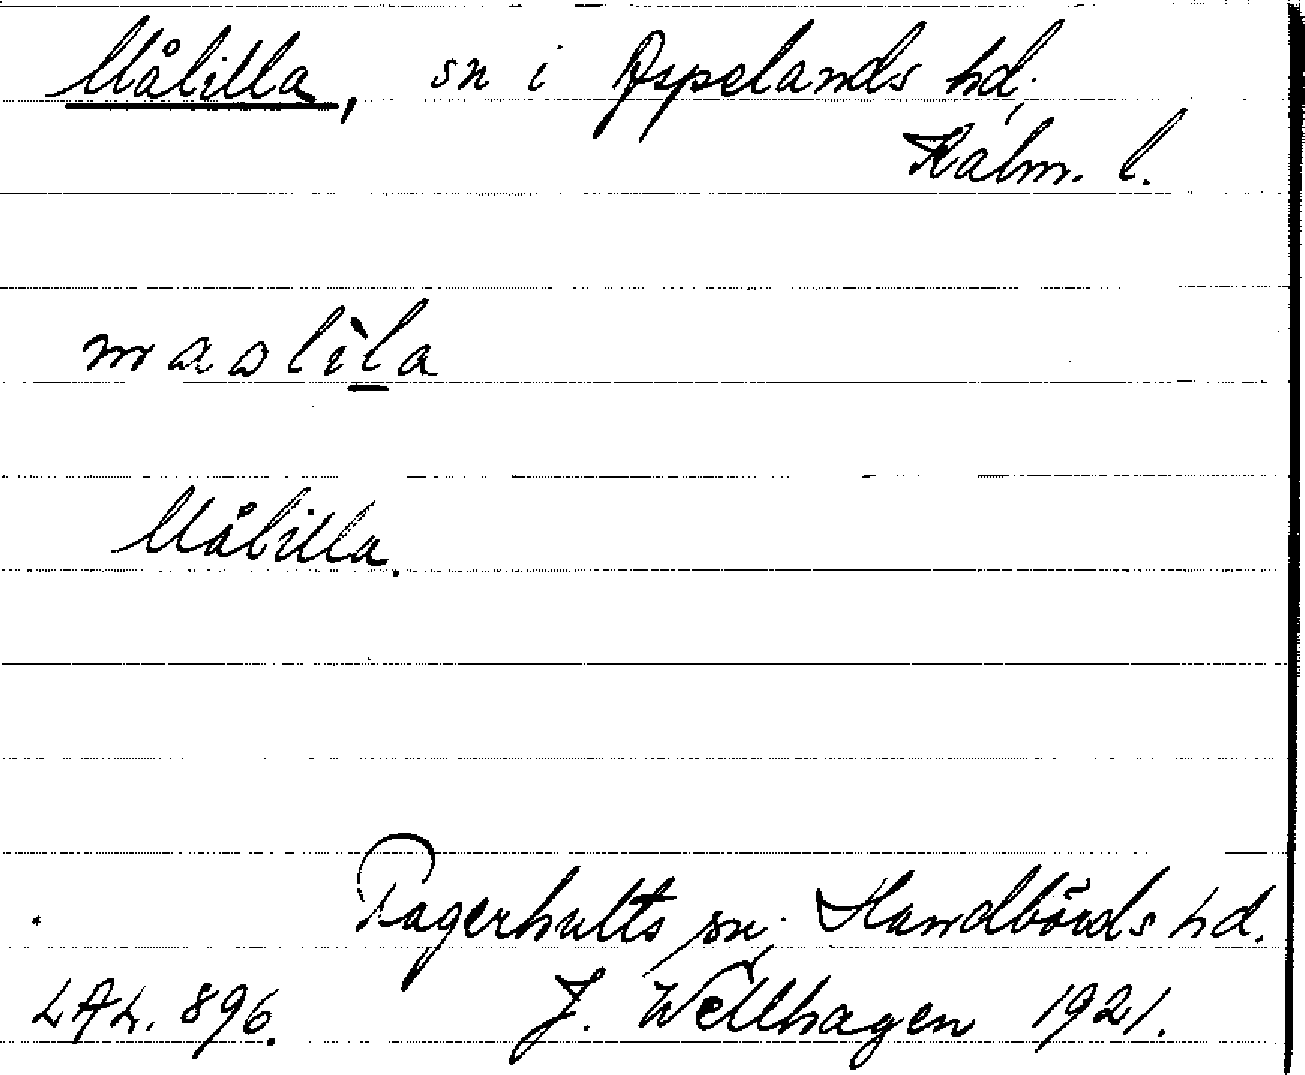 Målilla, sn i Aspelands hd,
Kalm. l.
maolìla
Målilla.
Fagerhults sn, Handbörds hd.
LAL. 896. J. Wellhagen 1921.